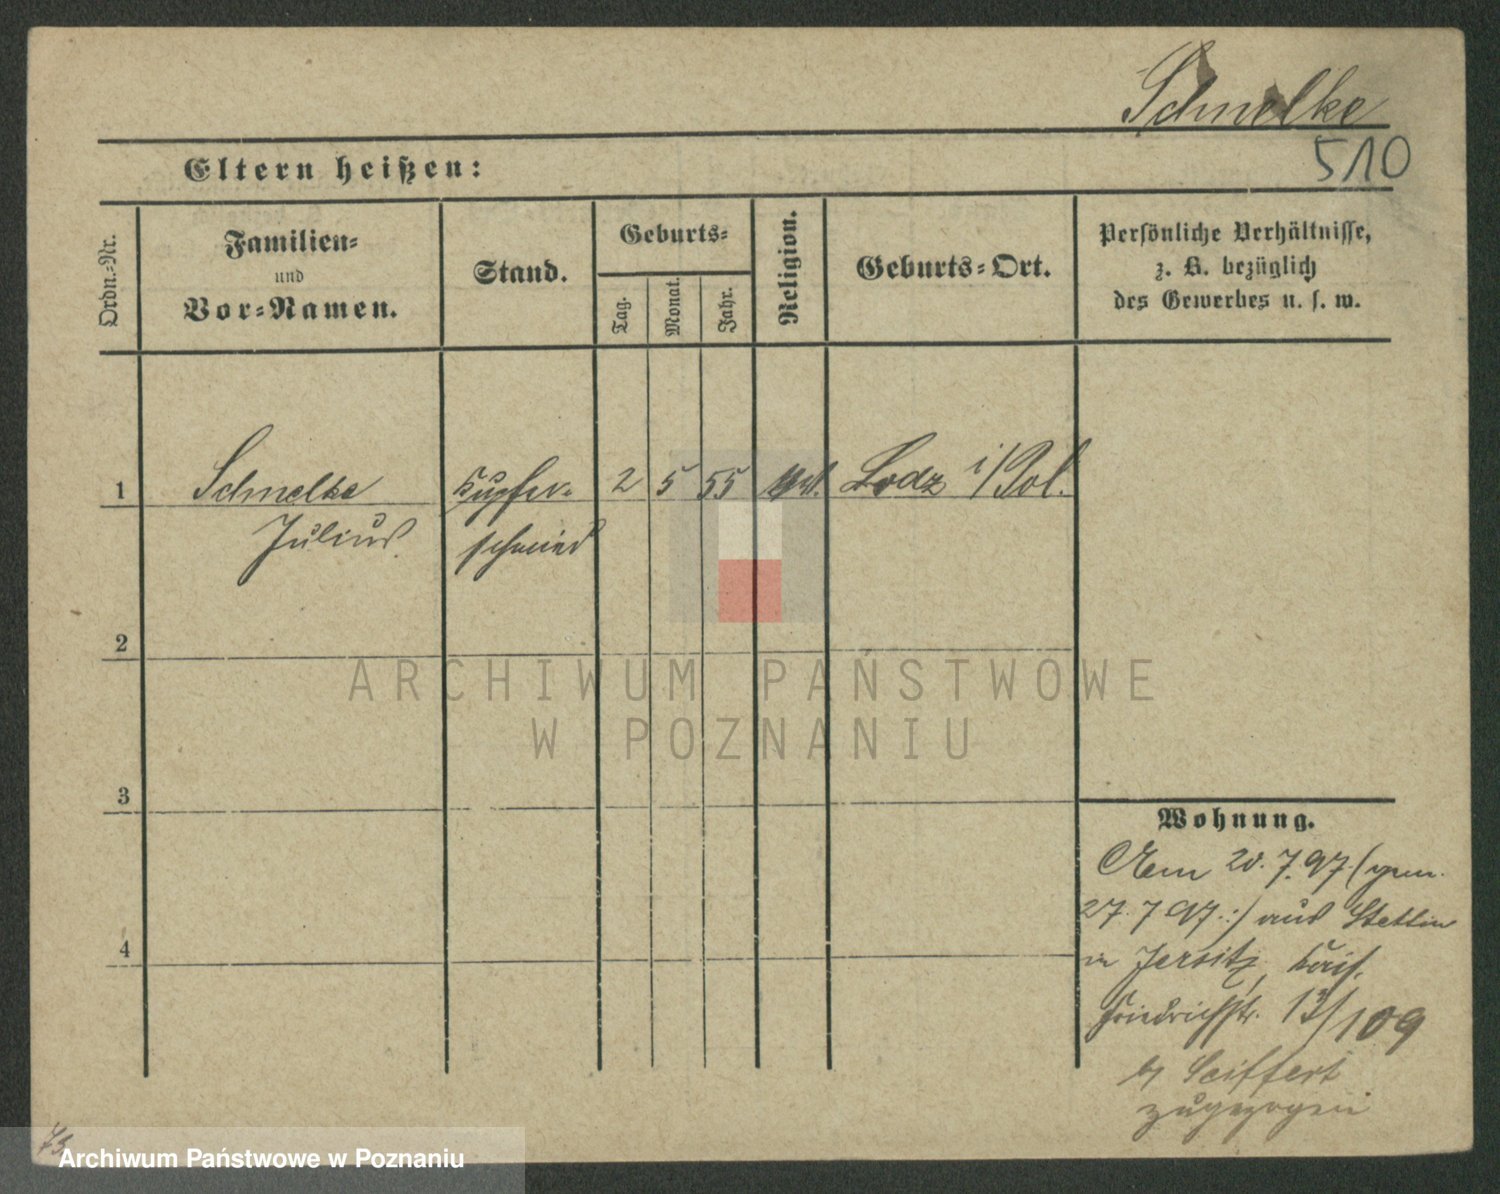 Schmelke
510
Eltern heißen:
Ordn.-Nr.
Familien-
und
Vor-Namen.
Stand.
Geburts-
Tag.
Monat.
Jahr.
Religion.
Geburts-Ort.
Persönliche Verhältnisse,
z. B. bezüglich
des Gewerbes u. s. w.
1 Schmelke Kupfer- 2 5 55 Lodz i/Pol.
Julius schmied
2
3
4
ARCHIWUM PAŃSTWOWE
W POZNANIU
Wohnung.
Am 20.7.97 (gem.
27.7.97.:) aus Stettin
in Jersitz, Kais.
Friedrichstr. /109
b/ Seiffert
zugezogen
Archiwum Państwowe w Poznaniu